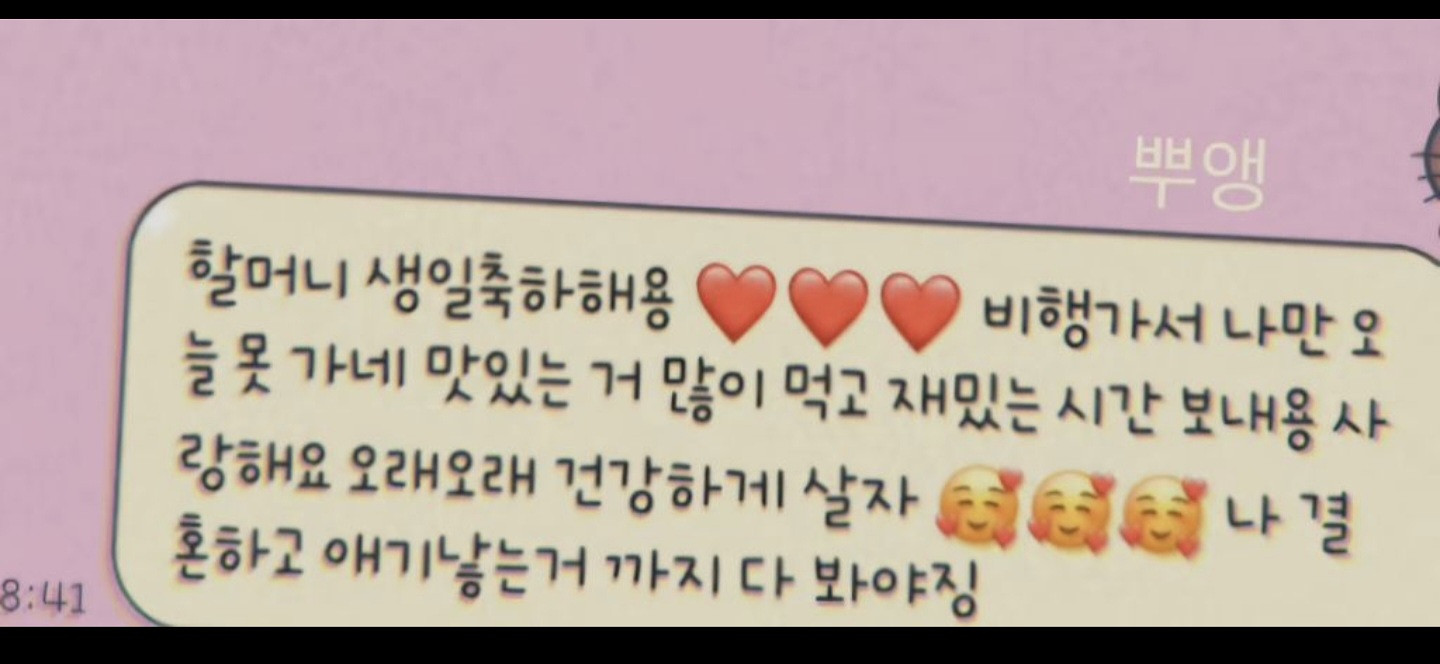 뿌앵
할머니 생일축하해용 ❤️❤️❤️ 비행가서 나만 오
늘 못 가네 맛있는 거 많이 먹고 재밌는 시간 보내용 사
랑해요 오래오래 건강하게 살자 🥰🥰🥰 나 결
혼하고 애기낳는거 까지 다 봐야징
8:41